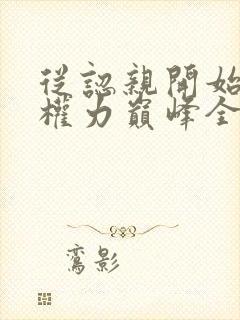 從認親開始
權力巔峰全
鸞影